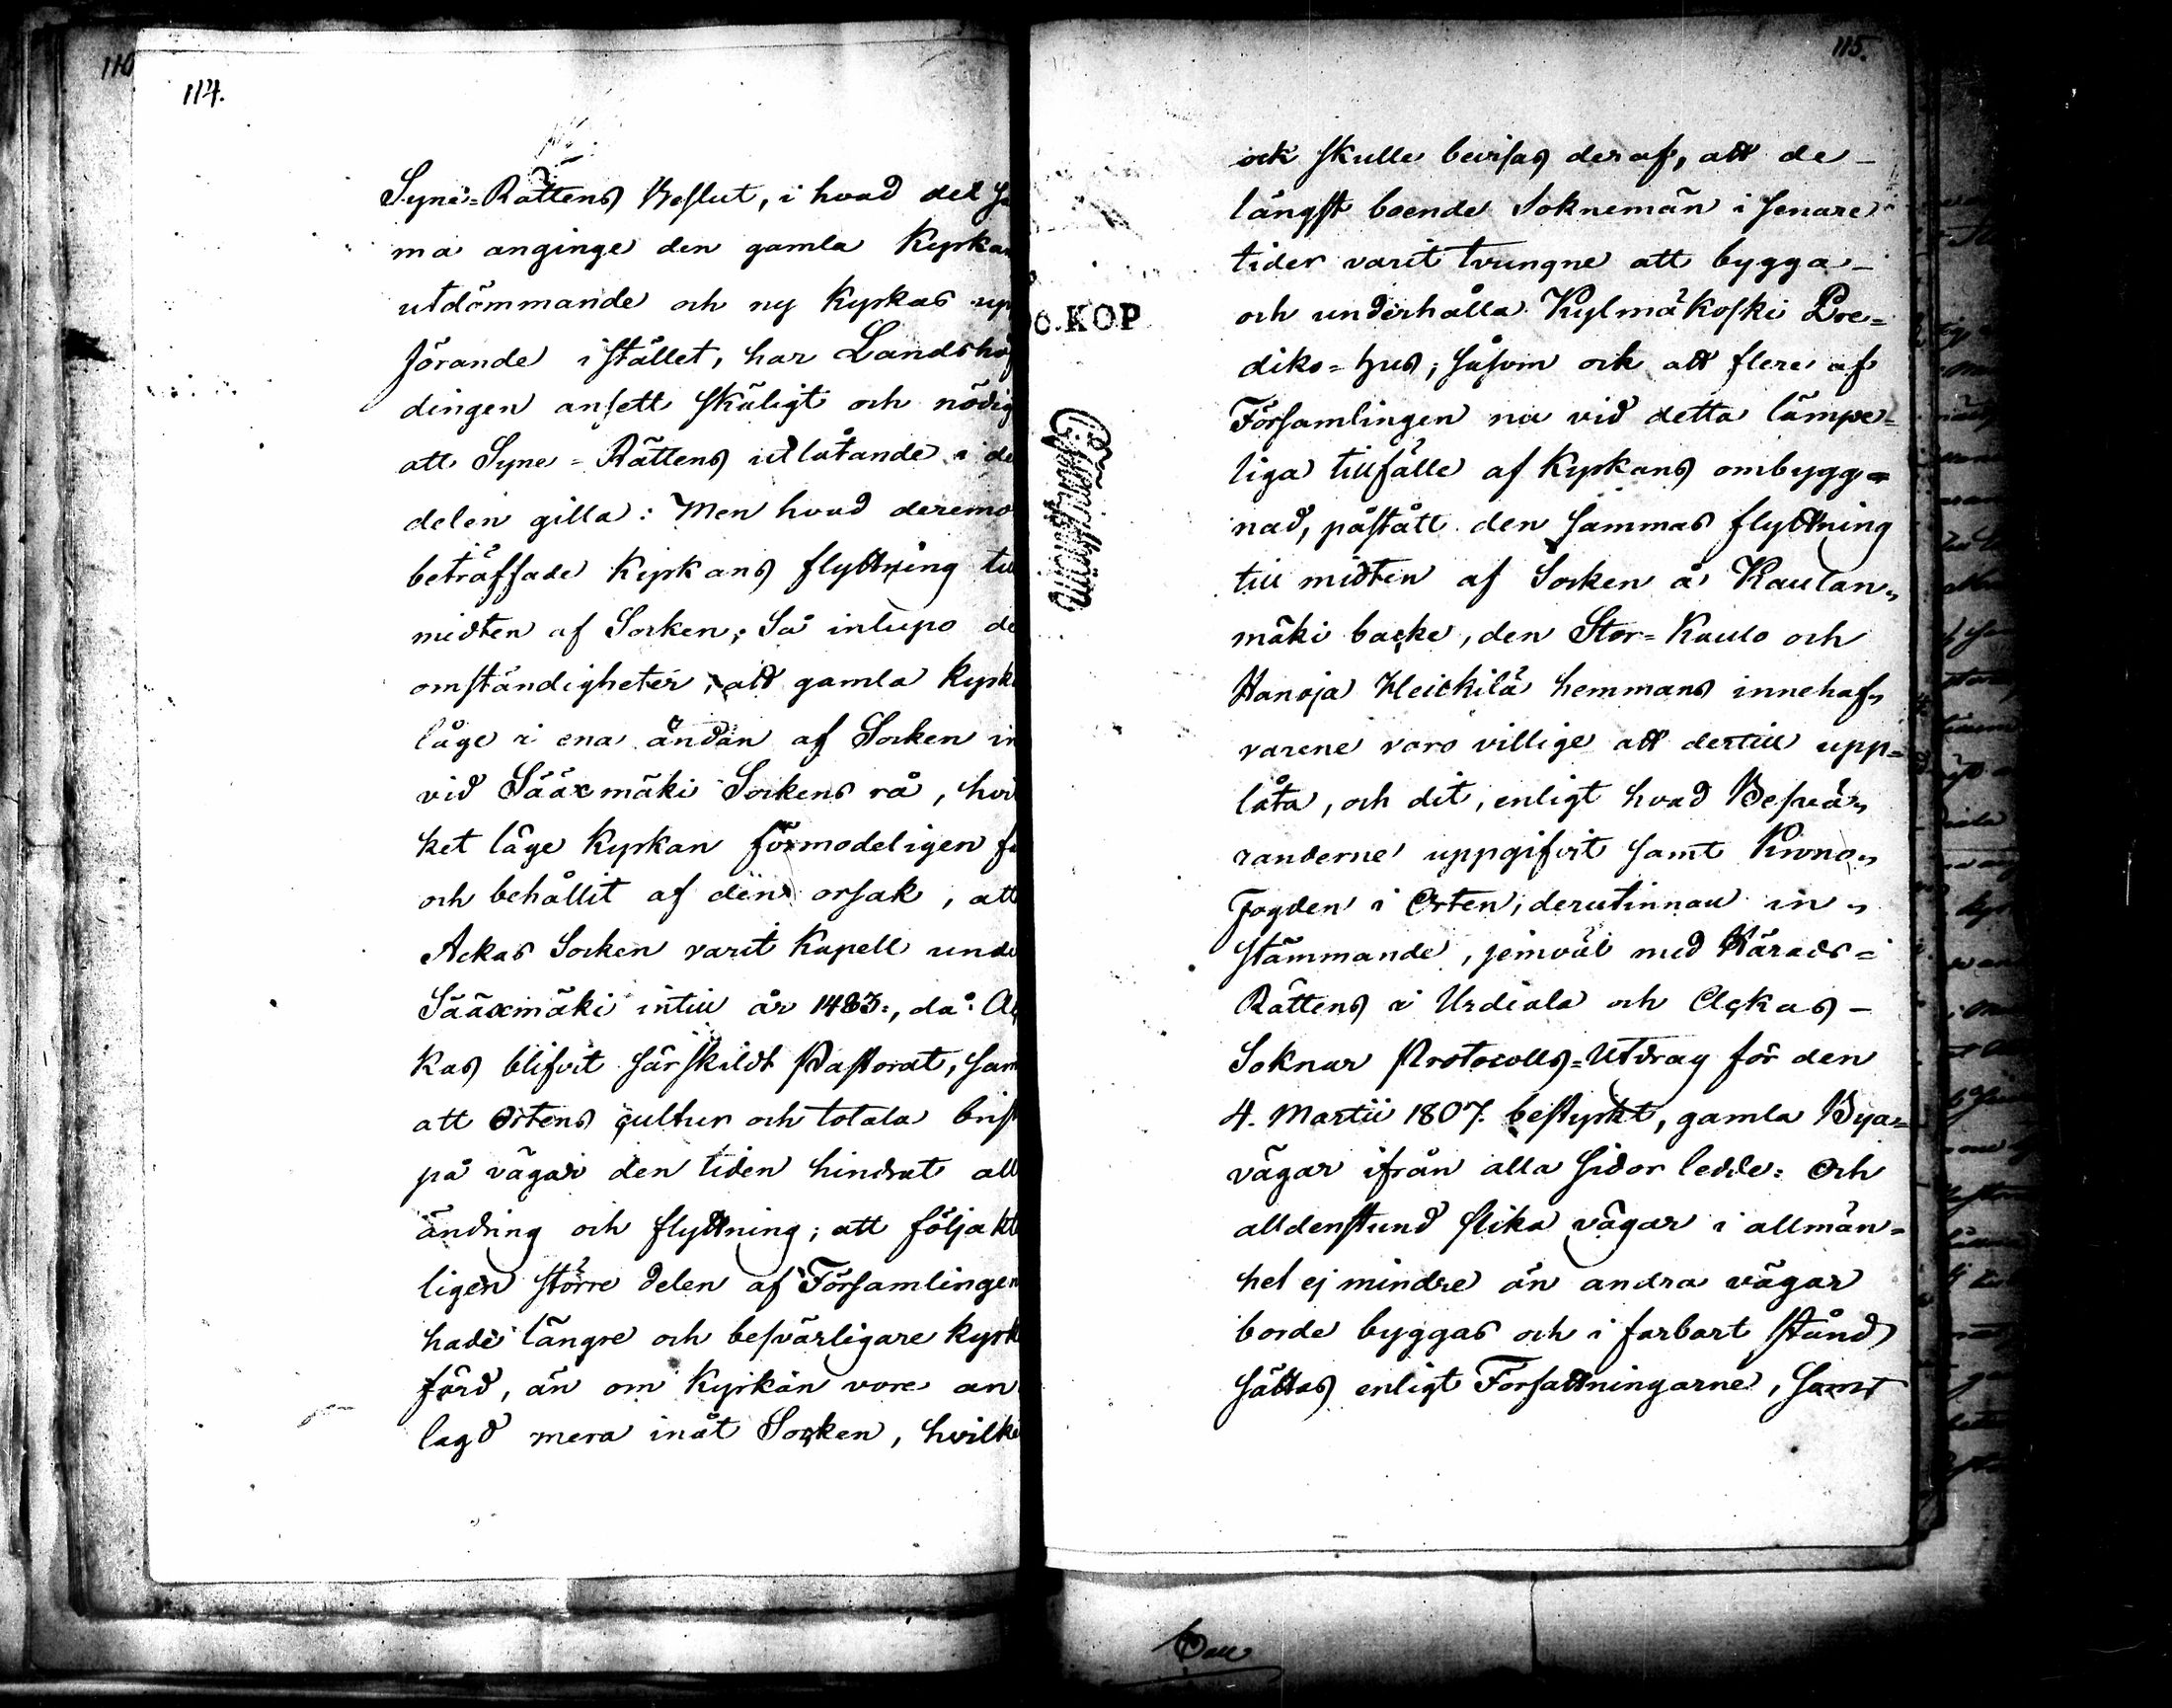 110
114.
Syne-Rättens Beslut, i hvad det sa
ma anginge den gamla Kyrkan
utdömmande och ny Kyrkas up
förande istället, har Landshöf
dingen ansett skäligt och nödig
att Syne-Rättens utlåtande i de
delen gilla: Men hvad deremo
beträffade Kyrkans flyttning till
midten af Socken; Så inlupo de
omständigheter, att gamla Kyrk
låge i ena ändan af Socken in
vid Sääxmäki Sockens rå, hvil
ket läge Kyrkan förmodeligen få
och behållit af den orsak, att
Ackas Socken varit Kapell unde
Sääxmäki intill år 1483:, då Ac
kas blifvit särskildt Pastorat, sam
att Ortens cultur och totala brist
på vägar den tiden hindrat all
ändring och flyttning; att följakt
ligen större delen af Församlingen
hade längre och besvärligare Kyrk
färd, än om Kyrkan vore an
lagd mera inåt Socken, hvilke
115.
ock skulle bevisas deraf, att de
längst boende Soknemän i senare
tider varit tvungne att bygga
och underhålla Kylmäkoski Pre=
diko=hus; såsom ock att flere af
Församlingen nu vid detta lämpe=
liga tillfälle af Kyrkans ombygg=
nad, påstått den sammas flyttning
till midten af Socken å Kaulan,,
mäki backe, den Stor=Kaulo och
Hanoja Heickilä hemmans innehaf,,
varene voro villige att dertill upp=
låta, och dit, enligt hvad Besvä,,
randerne uppgifvit samt Krono,,
Fogden i Orten, derutinnan in,,
stämmande, jemväl med Härads=
Rättens i Urdiala och Ackas
Soknar Protocolls=Utdrag för den
4. Martii 1807. bestyrkt, gamla Bya=
vägar ifrån alla sidor ledde: Och
alldenstund slika vägar i allmän=
het ej mindre än andra vägar
borde byggas och i farbart stånd
sättas enligt Författningarne, samt
6.KOP